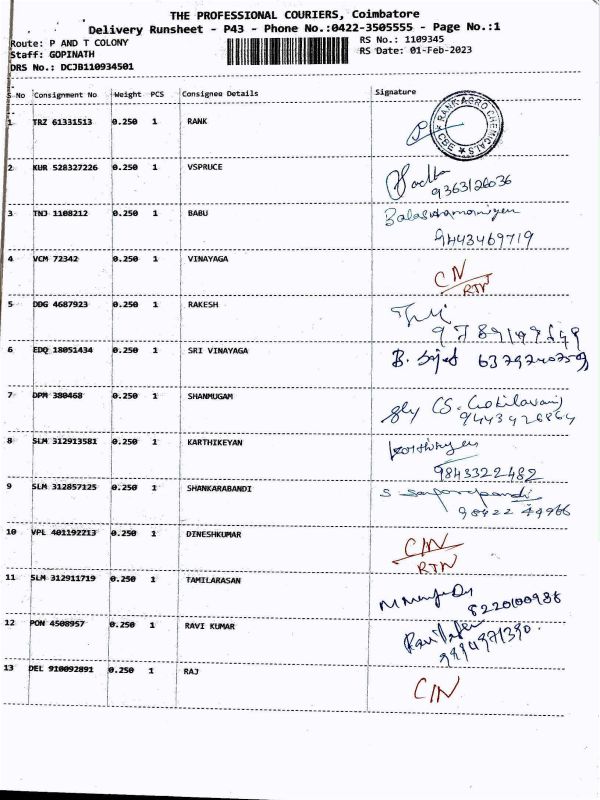 THE PROFESSIONAL COURIERS, Coimbatore
Delivery Runsheet - P43 - Phone No.:0422-3505555 - Page No.:1
Route: P AND T COLONY
RS No.: 1109345
Staff: GOPINATH
RS Date: 01-Feb-2023
DRS No.: DCJB110934501
S No Consignment No Weight PCS Consignee Details Signature
1 TRZ 61331513 0.250 1 RANK
RANK AGRO CHEMICALS CBE
2 KUR 528327226 0.250 1 VSPRUCE
9363126036
3 TNJ 1108212 0.250 1 BABU
9443469719
4 VCM 72342 0.250 1 VINAYAGA CN
RTN
5 DDG 4687923 0.250 1 RAKESH
6 EDQ 18051434 0.250 1 SRI VINAYAGA
7 DPM 380468 0.250 1 SHANMUGAM
9443426864
8 SLM 312913581 0.250 1 KARTHIKEYAN
9843322482
9 SLM 312857125 0.250 1 SHANKARABANDI
98422 49966
10 VPL 401192213 0.250 1 DINESHKUMAR CN
RTN
11 SLM 312911719 0.250 1 TAMILARASAN
8220100986
12 PON 4508957 0.250 1 RAVI KUMAR
9994971390.
13 DEL 910092891 0.250 1 RAJ CN